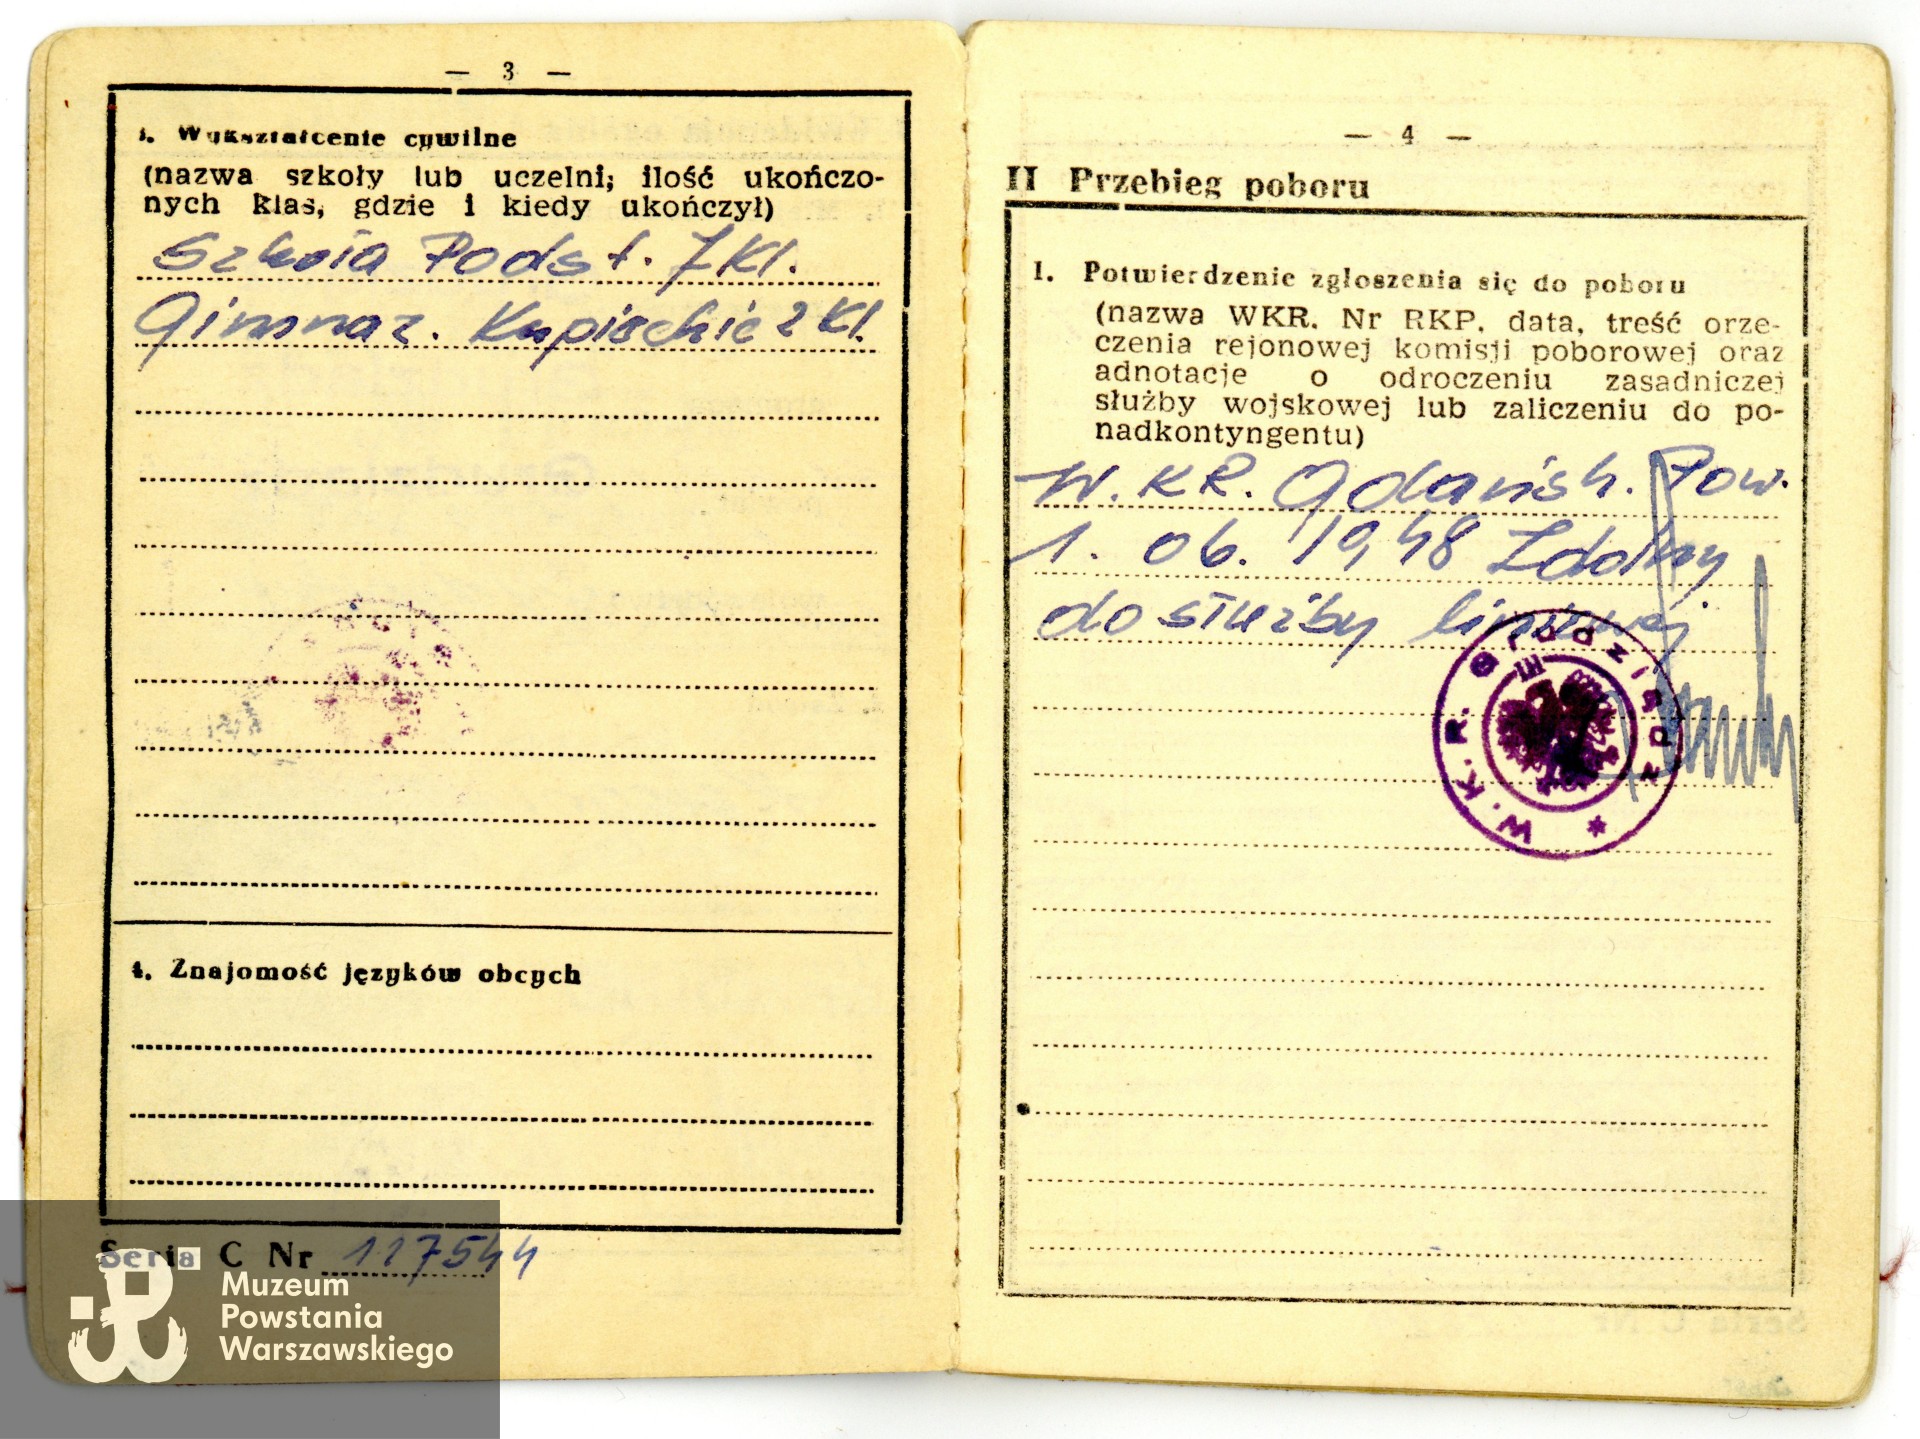 — 3 —
3. Wykształcenie cywilne
(nazwa szkoły lub uczelni; ilość ukończo-
nych klas, gdzie i kiedy ukończył)
Szkoła Podst. 7 Kl.
Gimnaz. Kupieckie 2 Kl.
4. Znajomość języków obcych
Seria C Nr 127544
Muzeum
Powstania
Warszawskiego
— 4 —
II Przebieg poboru
1. Potwierdzenie zgłoszenia się do poboru
(nazwa WKR. Nr RKP. data, treść orze-
czenia rejonowej komisji poborowej oraz
adnotacje o odroczeniu zasadniczej
służby wojskowej lub zaliczeniu do po-
nadkontyngentu)
W.KR. Gdańsk. Pow.
1. 06. 1948 Zdolny
do służby liniowej
W. K. R.